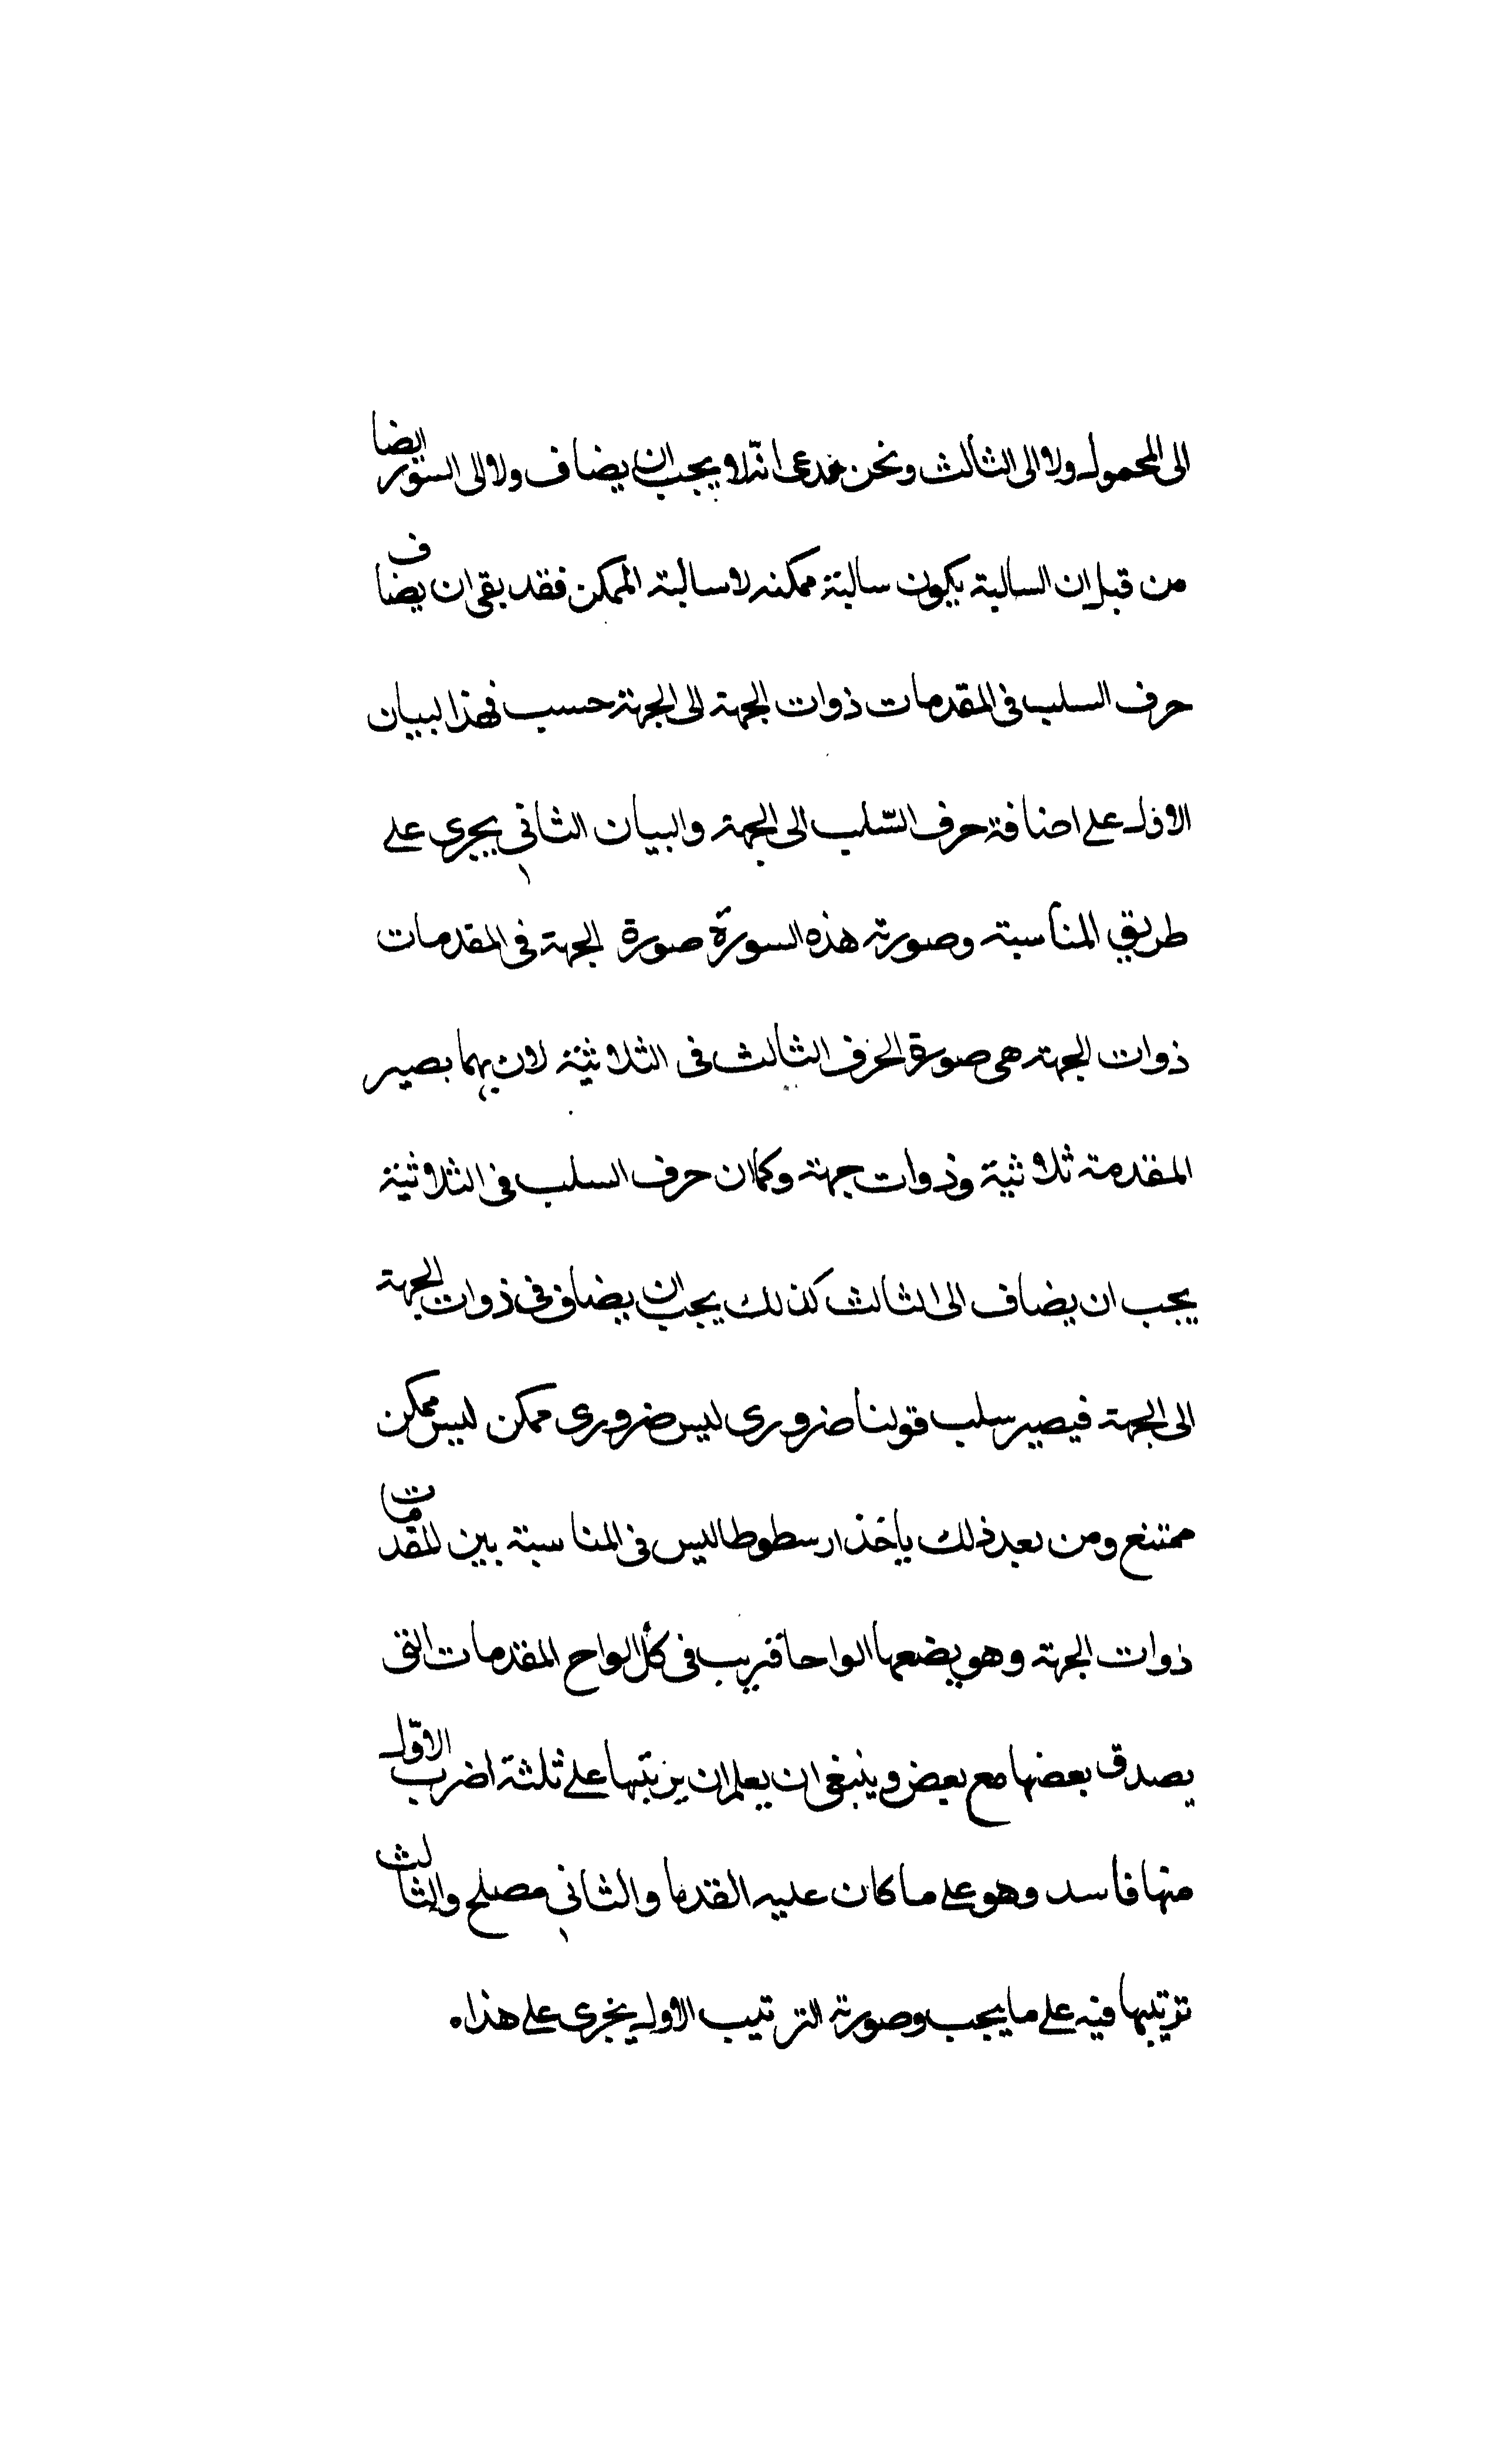 الى المحمول ولا الى الثالث ونحن ندعى انه لا يجب ان يضاف ولا الى السور ايضا
من قبل ان السالبة يكون سالبة ممكنه لا سالبة الممكن فقد بقى ان يضاف
حرف السلب فى المقدمات ذوات الجهة الى الجهة حسب فهذا البيان
الاول على اضافة حرف السّلب الى الجهة والبيان الثانى يجرى على
طريق المناسبة وصورته هذه السورة صورة الجهة فى المقدمات
ذوات الجهة هى صورة الحرف الثالث فى الثلاثية لان بهما بصير
المقدمة ثلاثية وذوات جهة وكما ان حرف السلب فى الثلاثية
يجب ان يضاف الى الثالث كذلك يجب ان يضاف فى ذوات الجهة
الى الجهة فيصير سلب قولنا ضرورى ليس ضرورى ممكن ليس ممكن
ممتنع ومن بعد ذلك يأخذ ارسطوطاليس فى المناسبة بين المقدمات
ذوات الجهة وهو يضعها الواحا قريب فى كل الواح المقدمات التى
يصدق بعضها مع بعض وينبغى ان يعلم ان يرتبها على ثلثة اضرب الاوّل
منها فاسد وهو على ما كان عليه القدما والثانى مصلح والثالث
ترتيبها فيه على ما يجب وصورة الترتيب الاول يجرى على هذا.